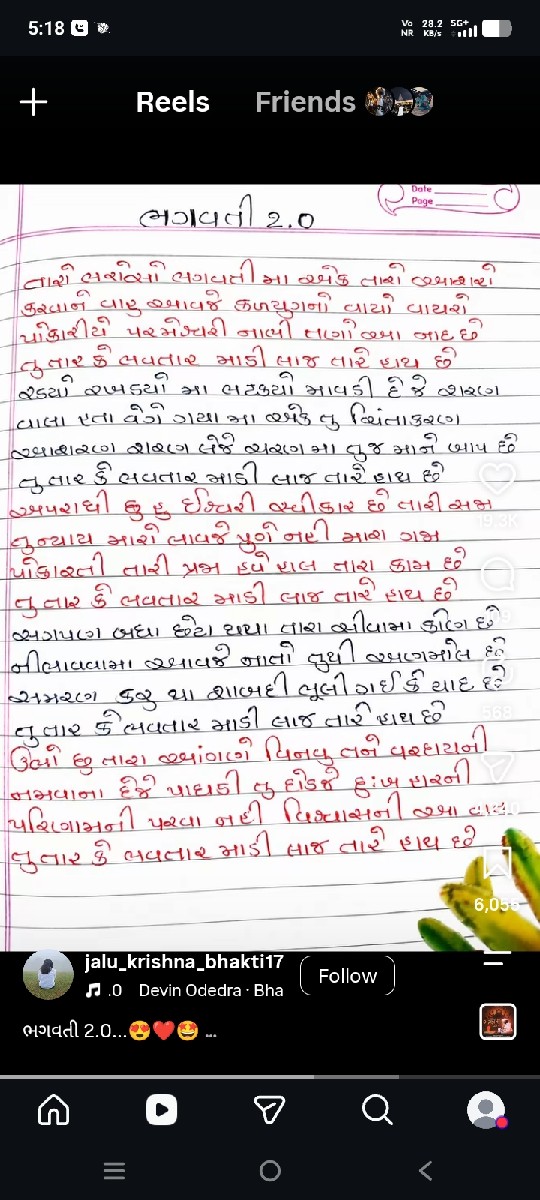 5:18
Vo NR
28.2 KB/s
5G+
Reels
Friends
Date
Page
ભગવતી 2.0
તારો ભરોસો ભગવતી મા એક તારો આશરો
કરવાને વારુ આવજે કળયુગનો વાયો વાયરો
પોકારીયે પરમેશ્વરી નાભી તણો આ નાદ છે
તુ તાર કે ભવતાર માડી લાજ તારે હાથ છે
રડયો રખડયો મા ભટકયો માવડી દે જે શરણ
વાલા હતા વેગે ગયા મા એક તુ ચિંતાહરણ
આશરણ શરણ લેજે ચરણ મા તુ જ માને બાપ છે
તુ તાર કે ભવતાર માડી લાજ તારે હાથ છે
અપરાધી છુ હુ ઈશ્વરી સ્વીકાર છે તારી સજા
તુ ન્યાય મારો લાવજે પુગે નહી મારા ગજા
પોકારતી તારી પ્રજા હવે હાલ તારા કામ છે
તુ તાર કે ભવતાર માડી લાજ તારે હાથ છે
સગપણ બધા છેટા થયા તારા સીવામા કોણ છે
નીભાવવામા આવજે નાતો તુથી અણમોલ છે
સમરણ કરુ થા શાબદી ભૂલી ગઈ કે યાદ છે
તુ તાર કે ભવતાર માડી લાજ તારે હાથ છે
ઉભો છુ તારા આંગણે વિનવુ તને વરદાયની
નમવાના દેજે પાઘડી તુ દોડજે દુઃખ હારની
પરિણામની પરવા નહી વિશ્વાસની આ વાત
તુ તાર કે ભવતાર માડી લાજ તારે હાથ છે
19.3K
568
6,056
jalu_krishna_bhakti17
.0 Devin Odedra · Bha
Follow
ભગવતી 2.0...😍❤️🤩 ...